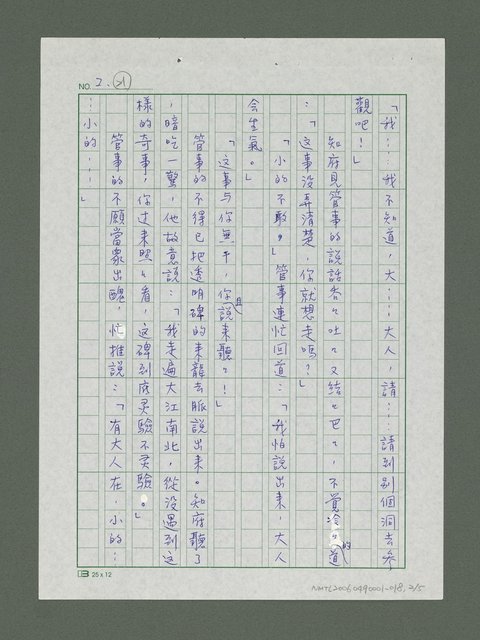 NO. 2.
「我……我不知道，大……大人，請……請到別個洞去參
觀吧！」
知府見管事的說話吞々吐々又結々巴々，不覺冷冷的道
：「這事沒弄清楚，你就想走嗎？」
「小的不敢。」管事連忙回道：「我怕說出來，大人
會生氣。」
「這事与你無干，你且說來聽々！」
管事的不得已把透明碑的來龍去脈說出來。知府聽了
，暗吃一驚，他故意說：「我走遍大江南北，從沒遇到這
樣的奇事，你过來照々看，这碑到底灵驗不灵驗。」
管事的不願當眾出醜，忙推說：「有大人在，小的…
…小的……」
25 x 12
NMTL2006.0490001-018, 2/5